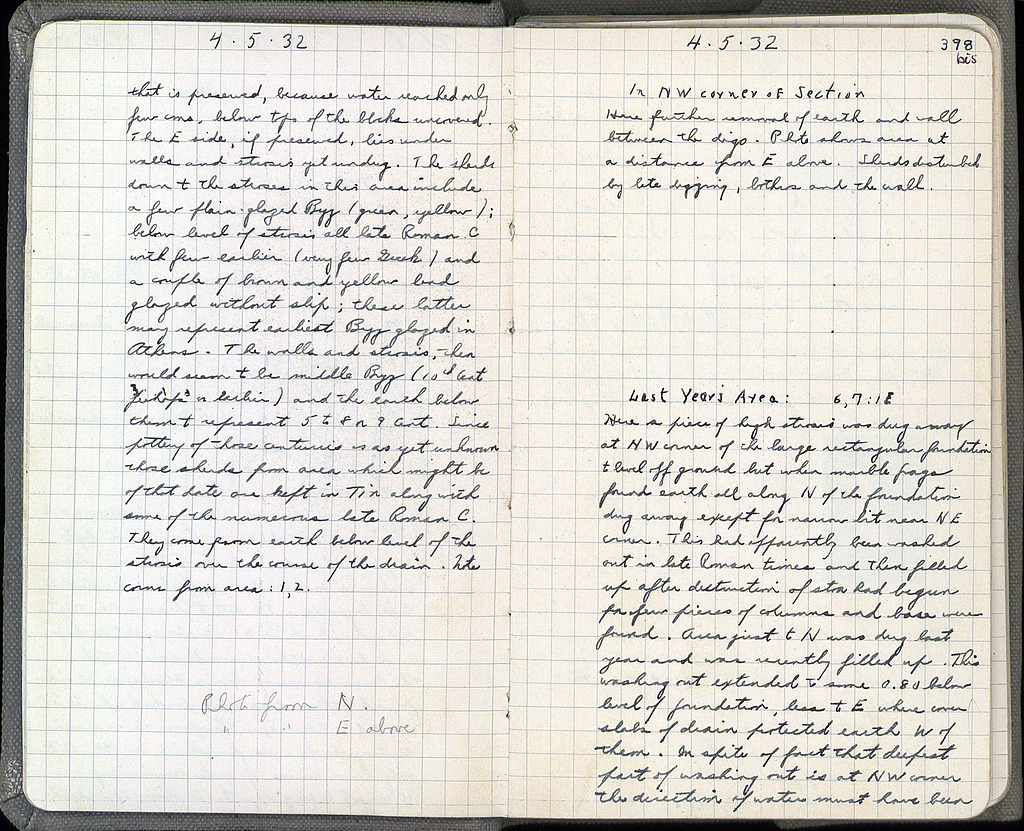 4 . 5 . 32
that is preserved, because water reached only
few cms. below tops of the blocks uncovered.
The E side, if preserved, lies under
walls and strosis yet undug. The sherds
down to the stroses in this area include
a few plain glazed Byz (green, yellow);
below level of strosis all late Roman C
with few earlier (very few Greek) and
a couple of brown and yellow lead
glazed without slip; these latter
may represent earliest Byz glazed in
Athens. The walls and strosis, then
would seem to be middle Byz (10th Cent
perhaps or earlier) and the earth below
them to represent 5 to 8 or 9 Cent. Since
pottery of those centuries is as yet unknown
those sherds from area which might be
of that date are kept in Tin along with
some of the numerous late Roman C.
They come from earth below level of the
strosis over the course of the drain.
coins from area: 1, 2.
Photo from N.
" " E above
4 . 5 . 32
398
bis
In NW corner of Section
Here further removal of earth and wall
between the digs. Photo shows area at
a distance from E above. Sherds disturbed
by late digging, bothros and the wall.
Last Year's Area: 6,7:ΙΕ
Here a piece of high strosis was dug away
at NW corner of the large rectangular foundation
to level off ground but when marble frags
found earth all along N of the foundation
dug away except for narrow bit near NE
corner. This had apparently been washed
out in late Roman times and then filled
up after destruction of stoa had begun
for few pieces of columns and base were
found. Area just to N was dug last
year and was recently filled up. This
washing out extended to some 0.80 below
level of foundation, less to E where cover
slabs of drain protected earth W of
them. In spite of fact that deepest
part of washing out is at NW corner
the direction of water must have been